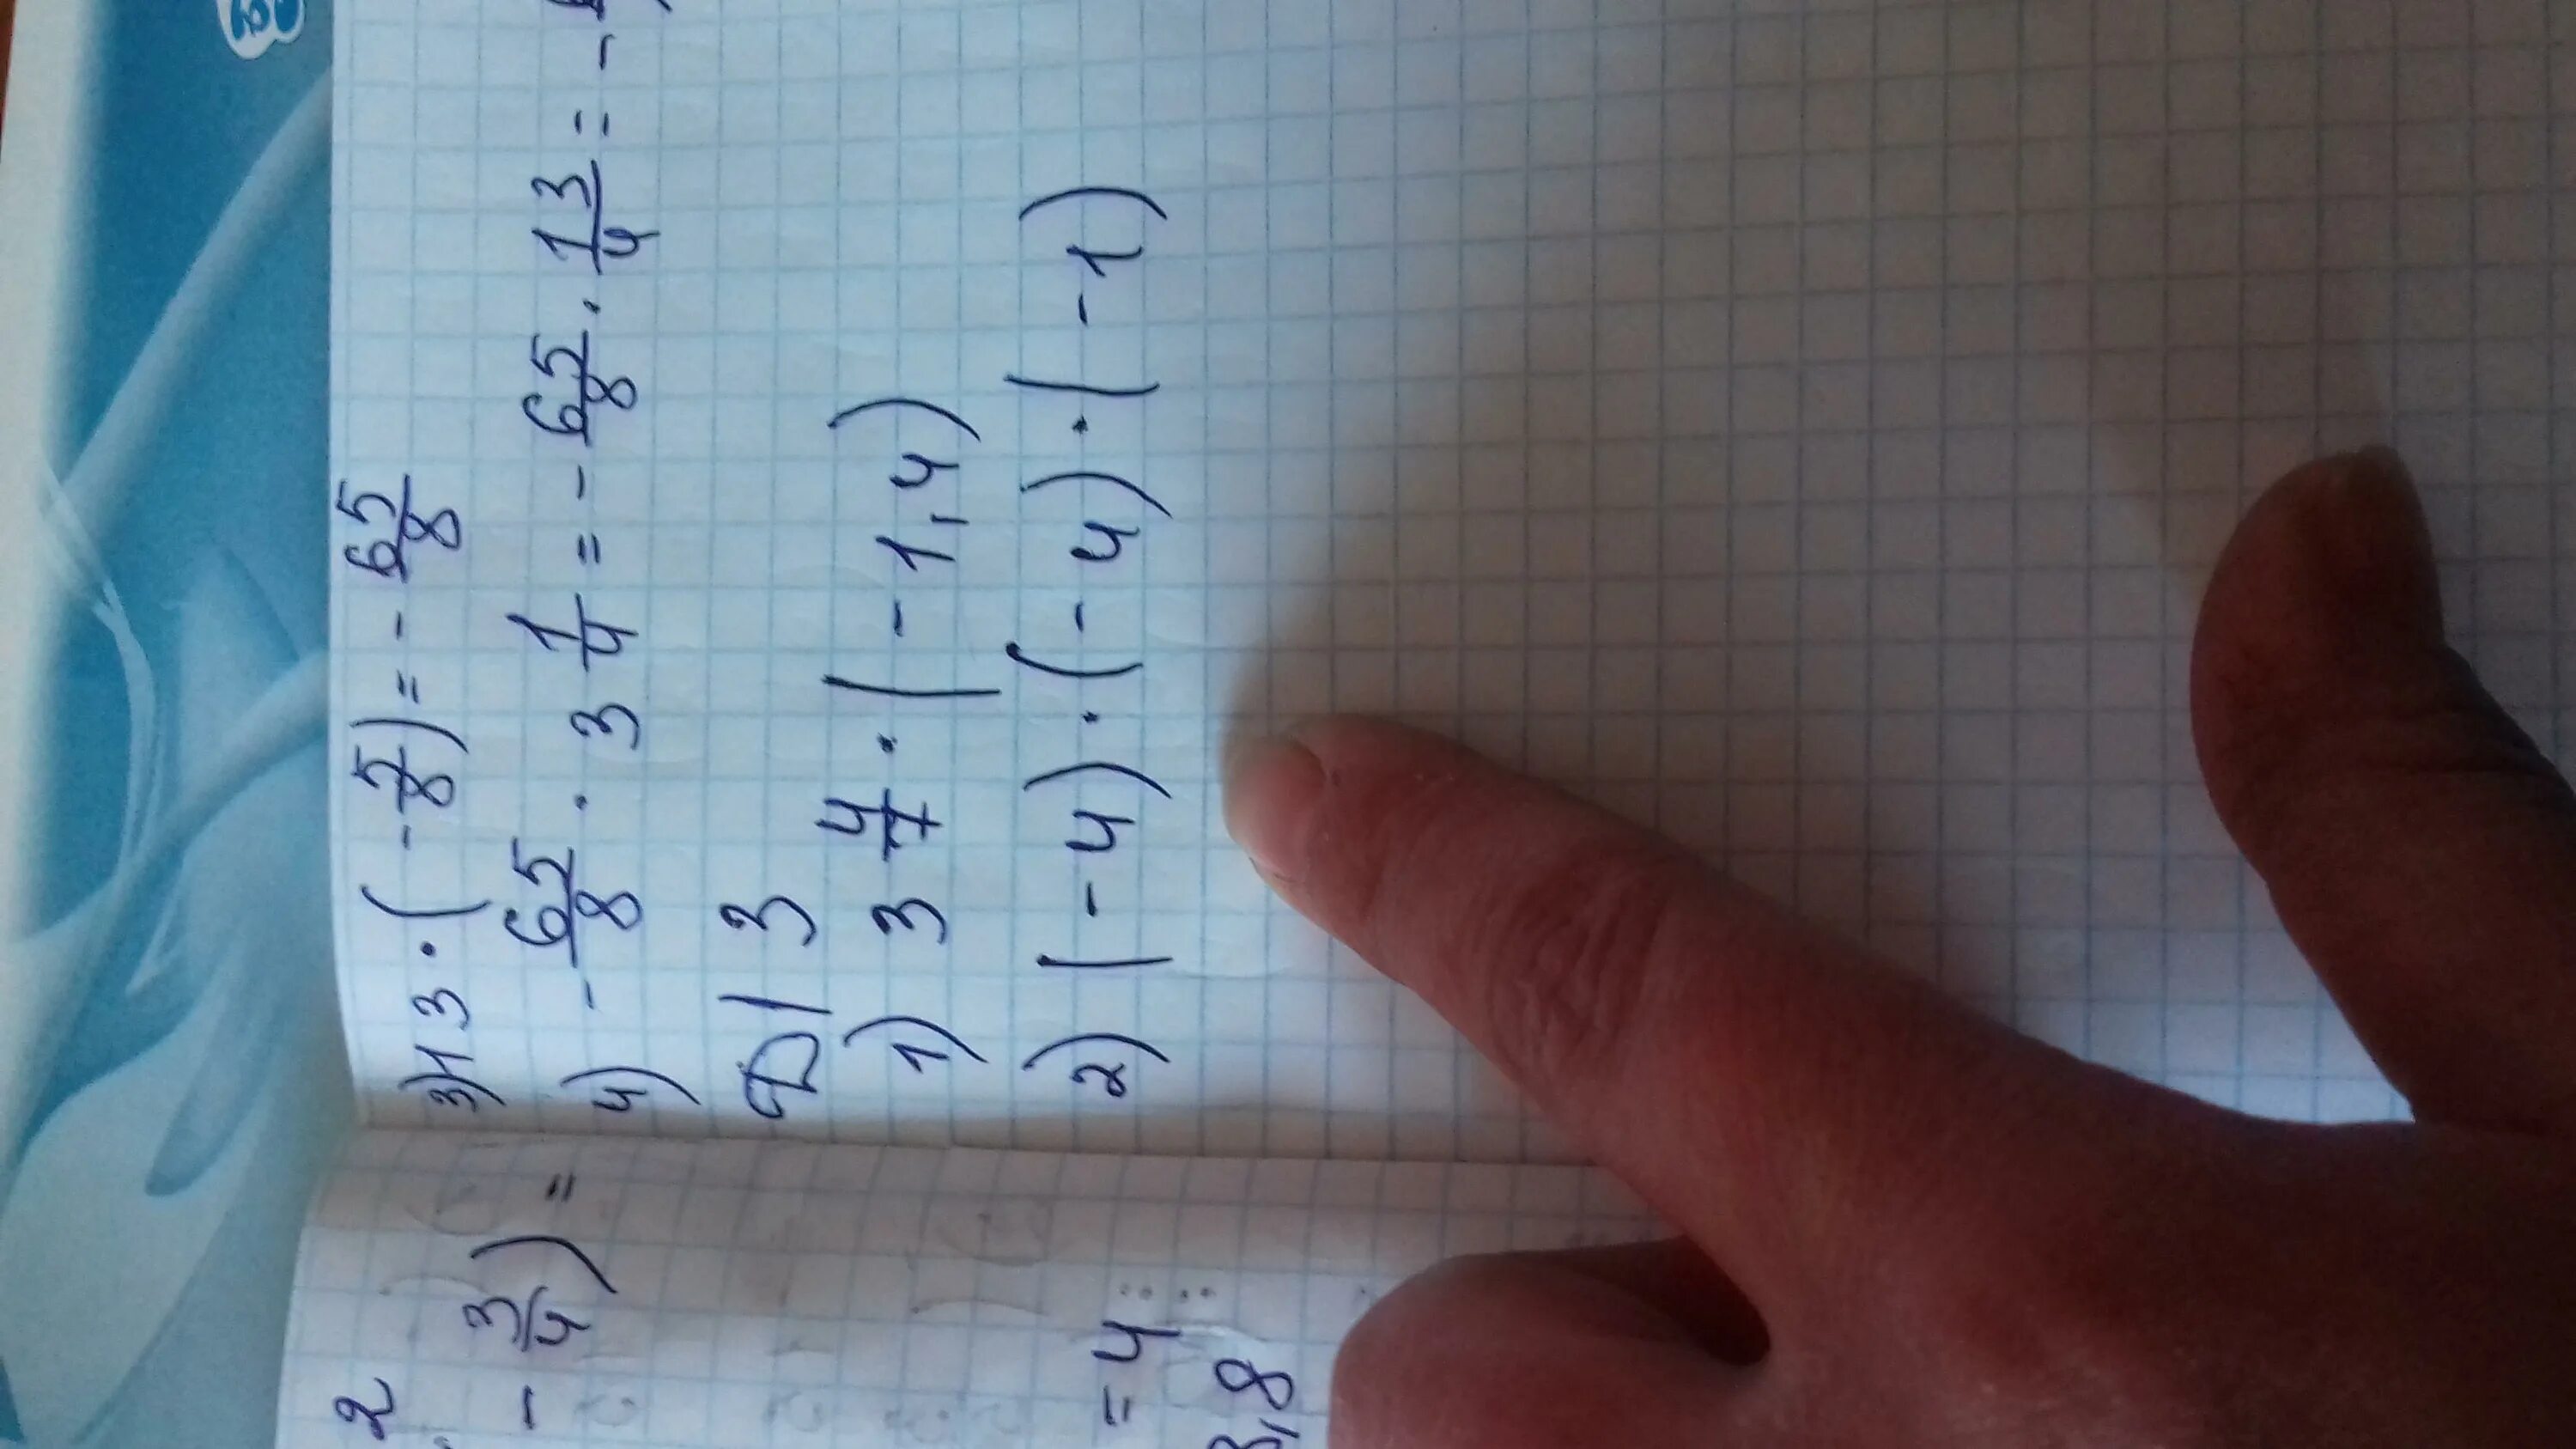 3) 13 · (-5/8) = - 65/8
4) - 65/8 · 3 1/4 = - 65/8 · 13/4 = -
Д/З
1) 3 4/7 · (-1,4)
2) (-4) · (-4) · (-1)
2
- 3/4) =
= 4
3,8